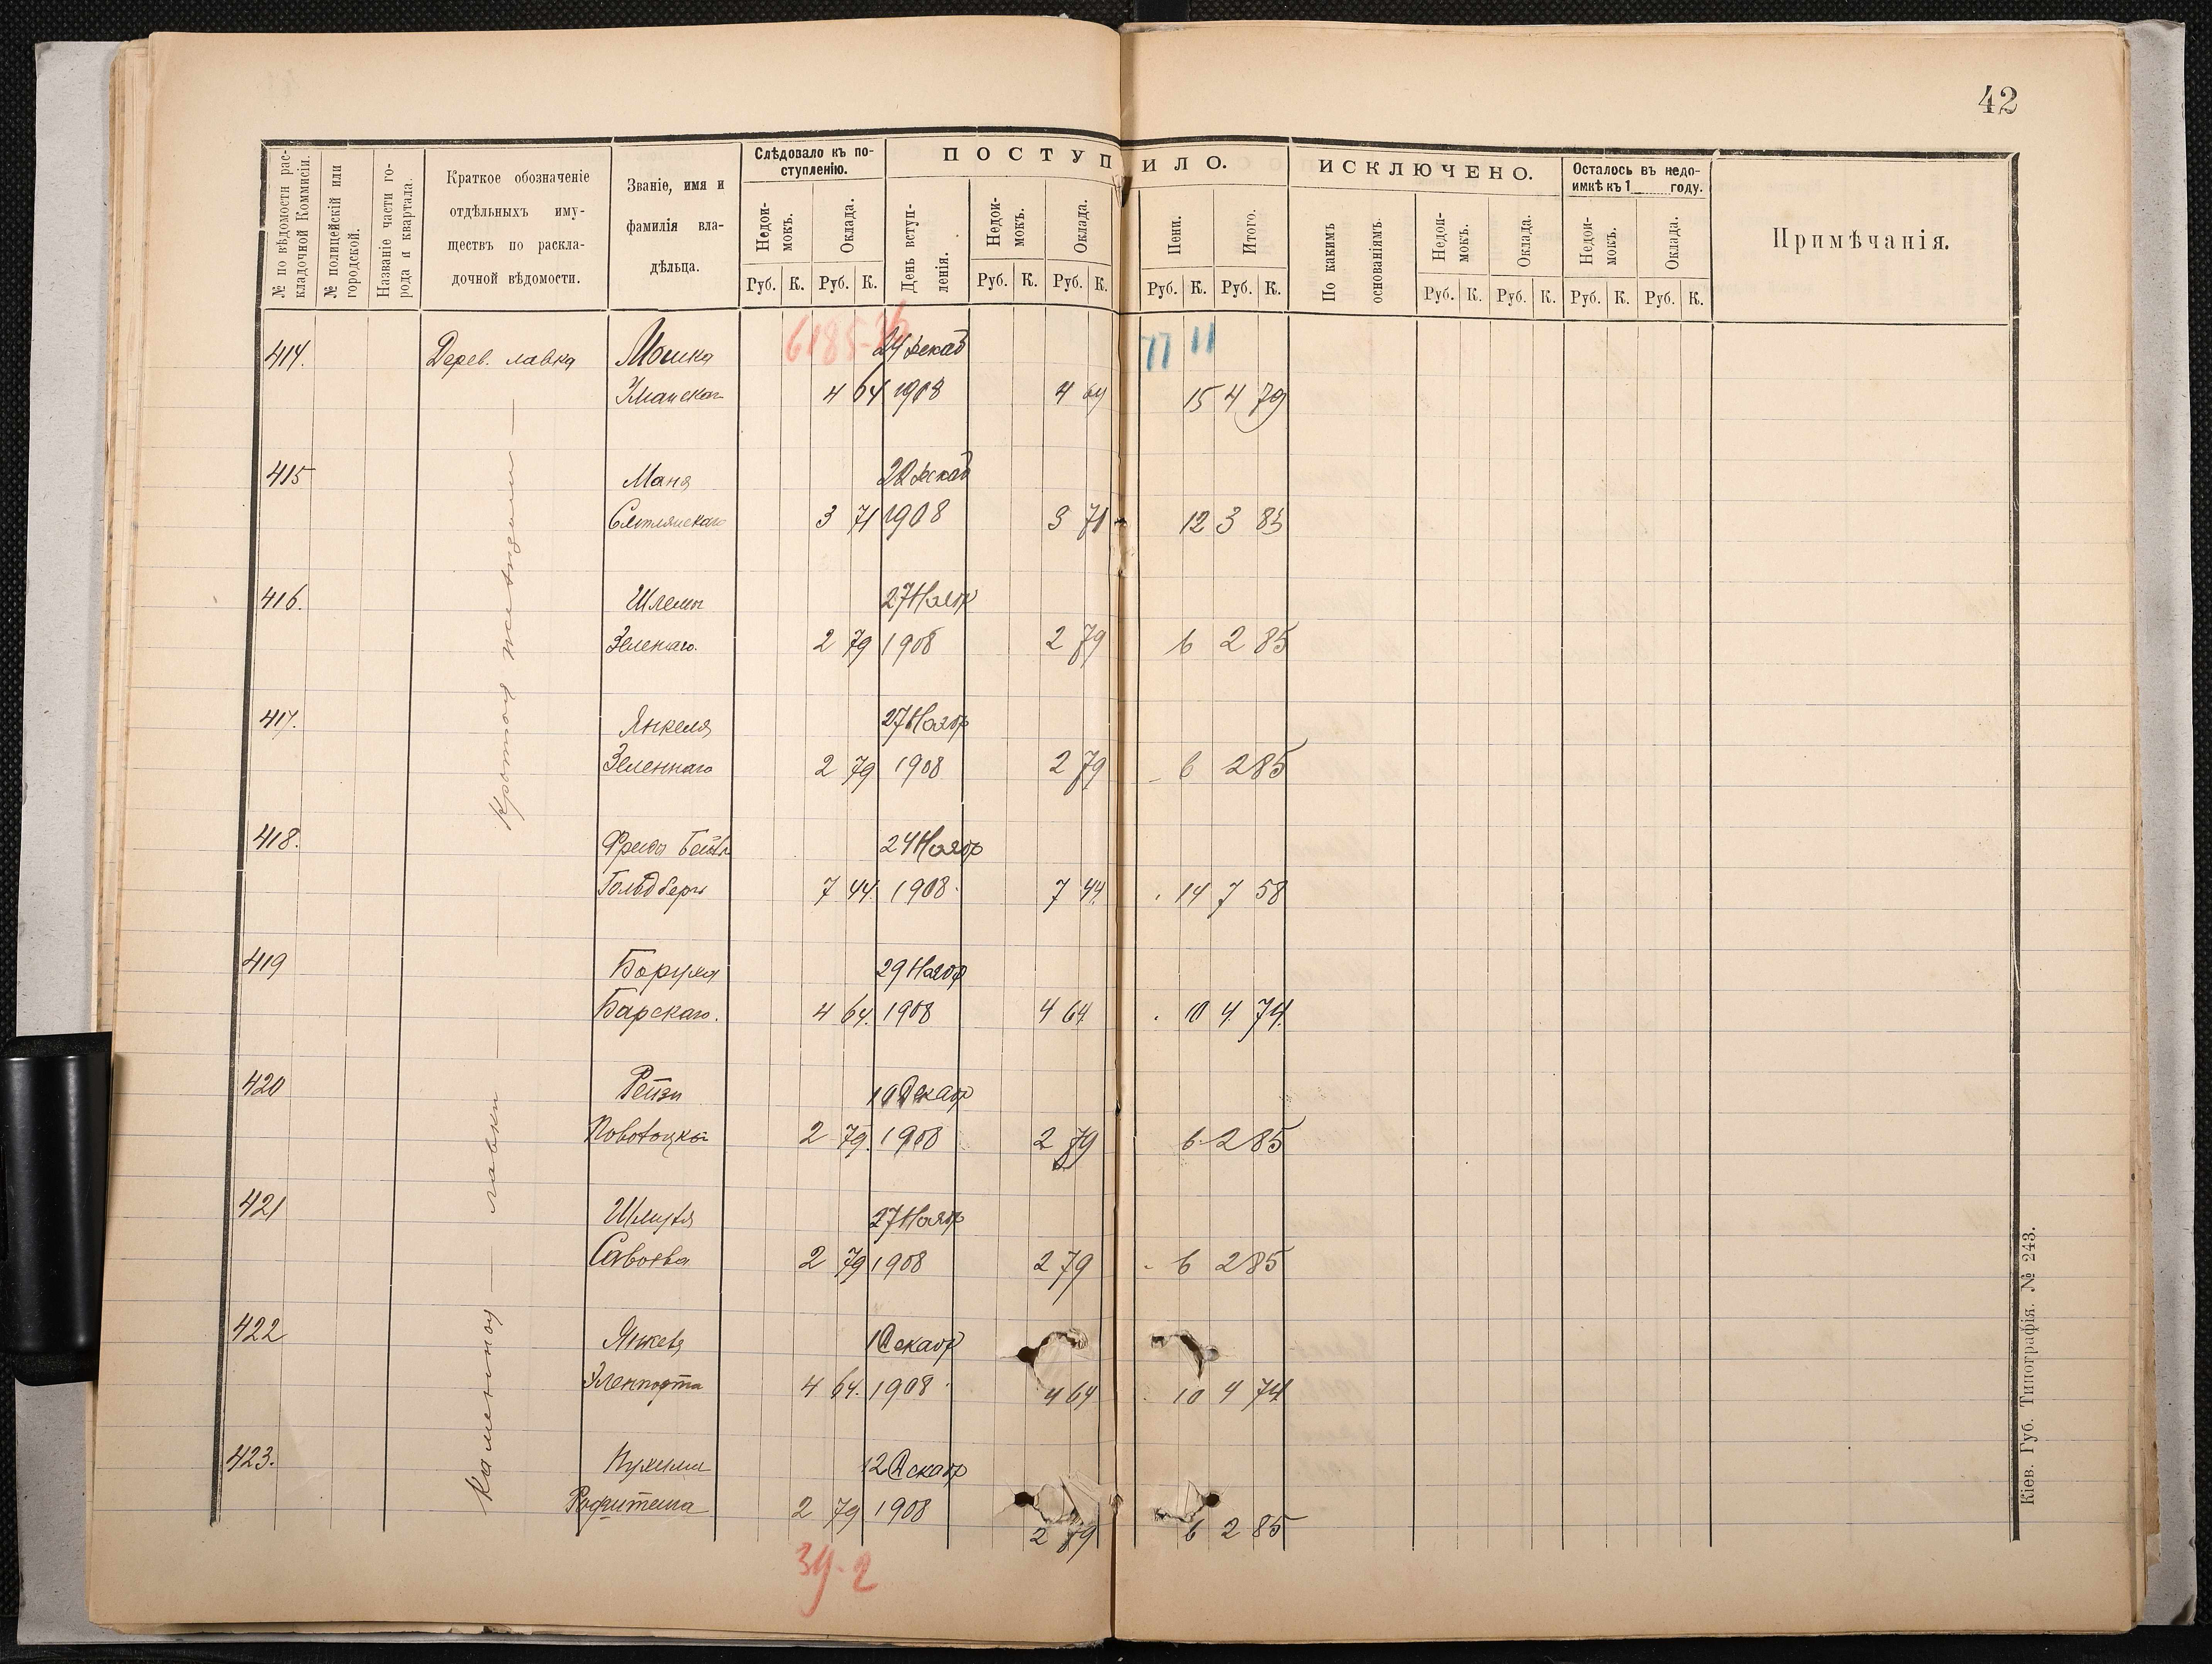 42
№ по вѣдомости рас-
кладочной Коммисіи.
№ полицейскій или
городской.
Названіе части го-
рода и квартала.
Краткое обозначеніе
отдѣльныхъ иму-
ществъ по раскла-
дочной вѣдомости.
Званіе, имя и
фамилія вла-
дѣльца.
Слѣдовало къ по-
ступленію.
Недои-
мокъ.
Оклада.
ПОСТУПИЛО.
День вступ-
ленія.
Недои-
мокъ.
Оклада.
Пени.
Итого.
ИСКЛЮЧЕНО.
По какимъ
основаніямъ.
Недои-
мокъ.
Оклада.
Осталось въ недо-
имкѣ къ 1 году.
Недои-
мокъ.
Оклада.
Примѣчанія.
Руб. К. Руб. К. Руб. К. Руб. К. Руб. К. Руб. К. Руб. К. Руб. К. Руб. К. Руб. К.
77 11
414. Дерев. лавка Мошка 24 декаб
4 64 1908 4 64 15 4 79
415 22 декаб
3 71 1908 3 71 12 3 83
416. Шлемы 27 Ноябр
Зеленаго. 2 79 1908 2 79 6 2 85
417. Янкеля 27 Ноябр
Зеленнаго 2 79 1908 2 79 6 2 85
418. 24 Ноябр
Гольдберъ 7 44. 1908. 7 44 14 7 58
419 Боруха 29 Ноябр
Барскаго. 4 64. 1908 4 64 10 4 74
420 Рейзи 10 Декабр
2 79. 1908 2 79 6 2 85
421 27 Ноябр
2 79 1908 2 79 6 2 85
422 Янкеля 1 Декабр
4 64. 1908 4 64 10 4 74
423. 12 Декабр
2 79 1908 2 79 6 2 85
лавки
39-2
Кіев. Губ. Типографія. № 243.